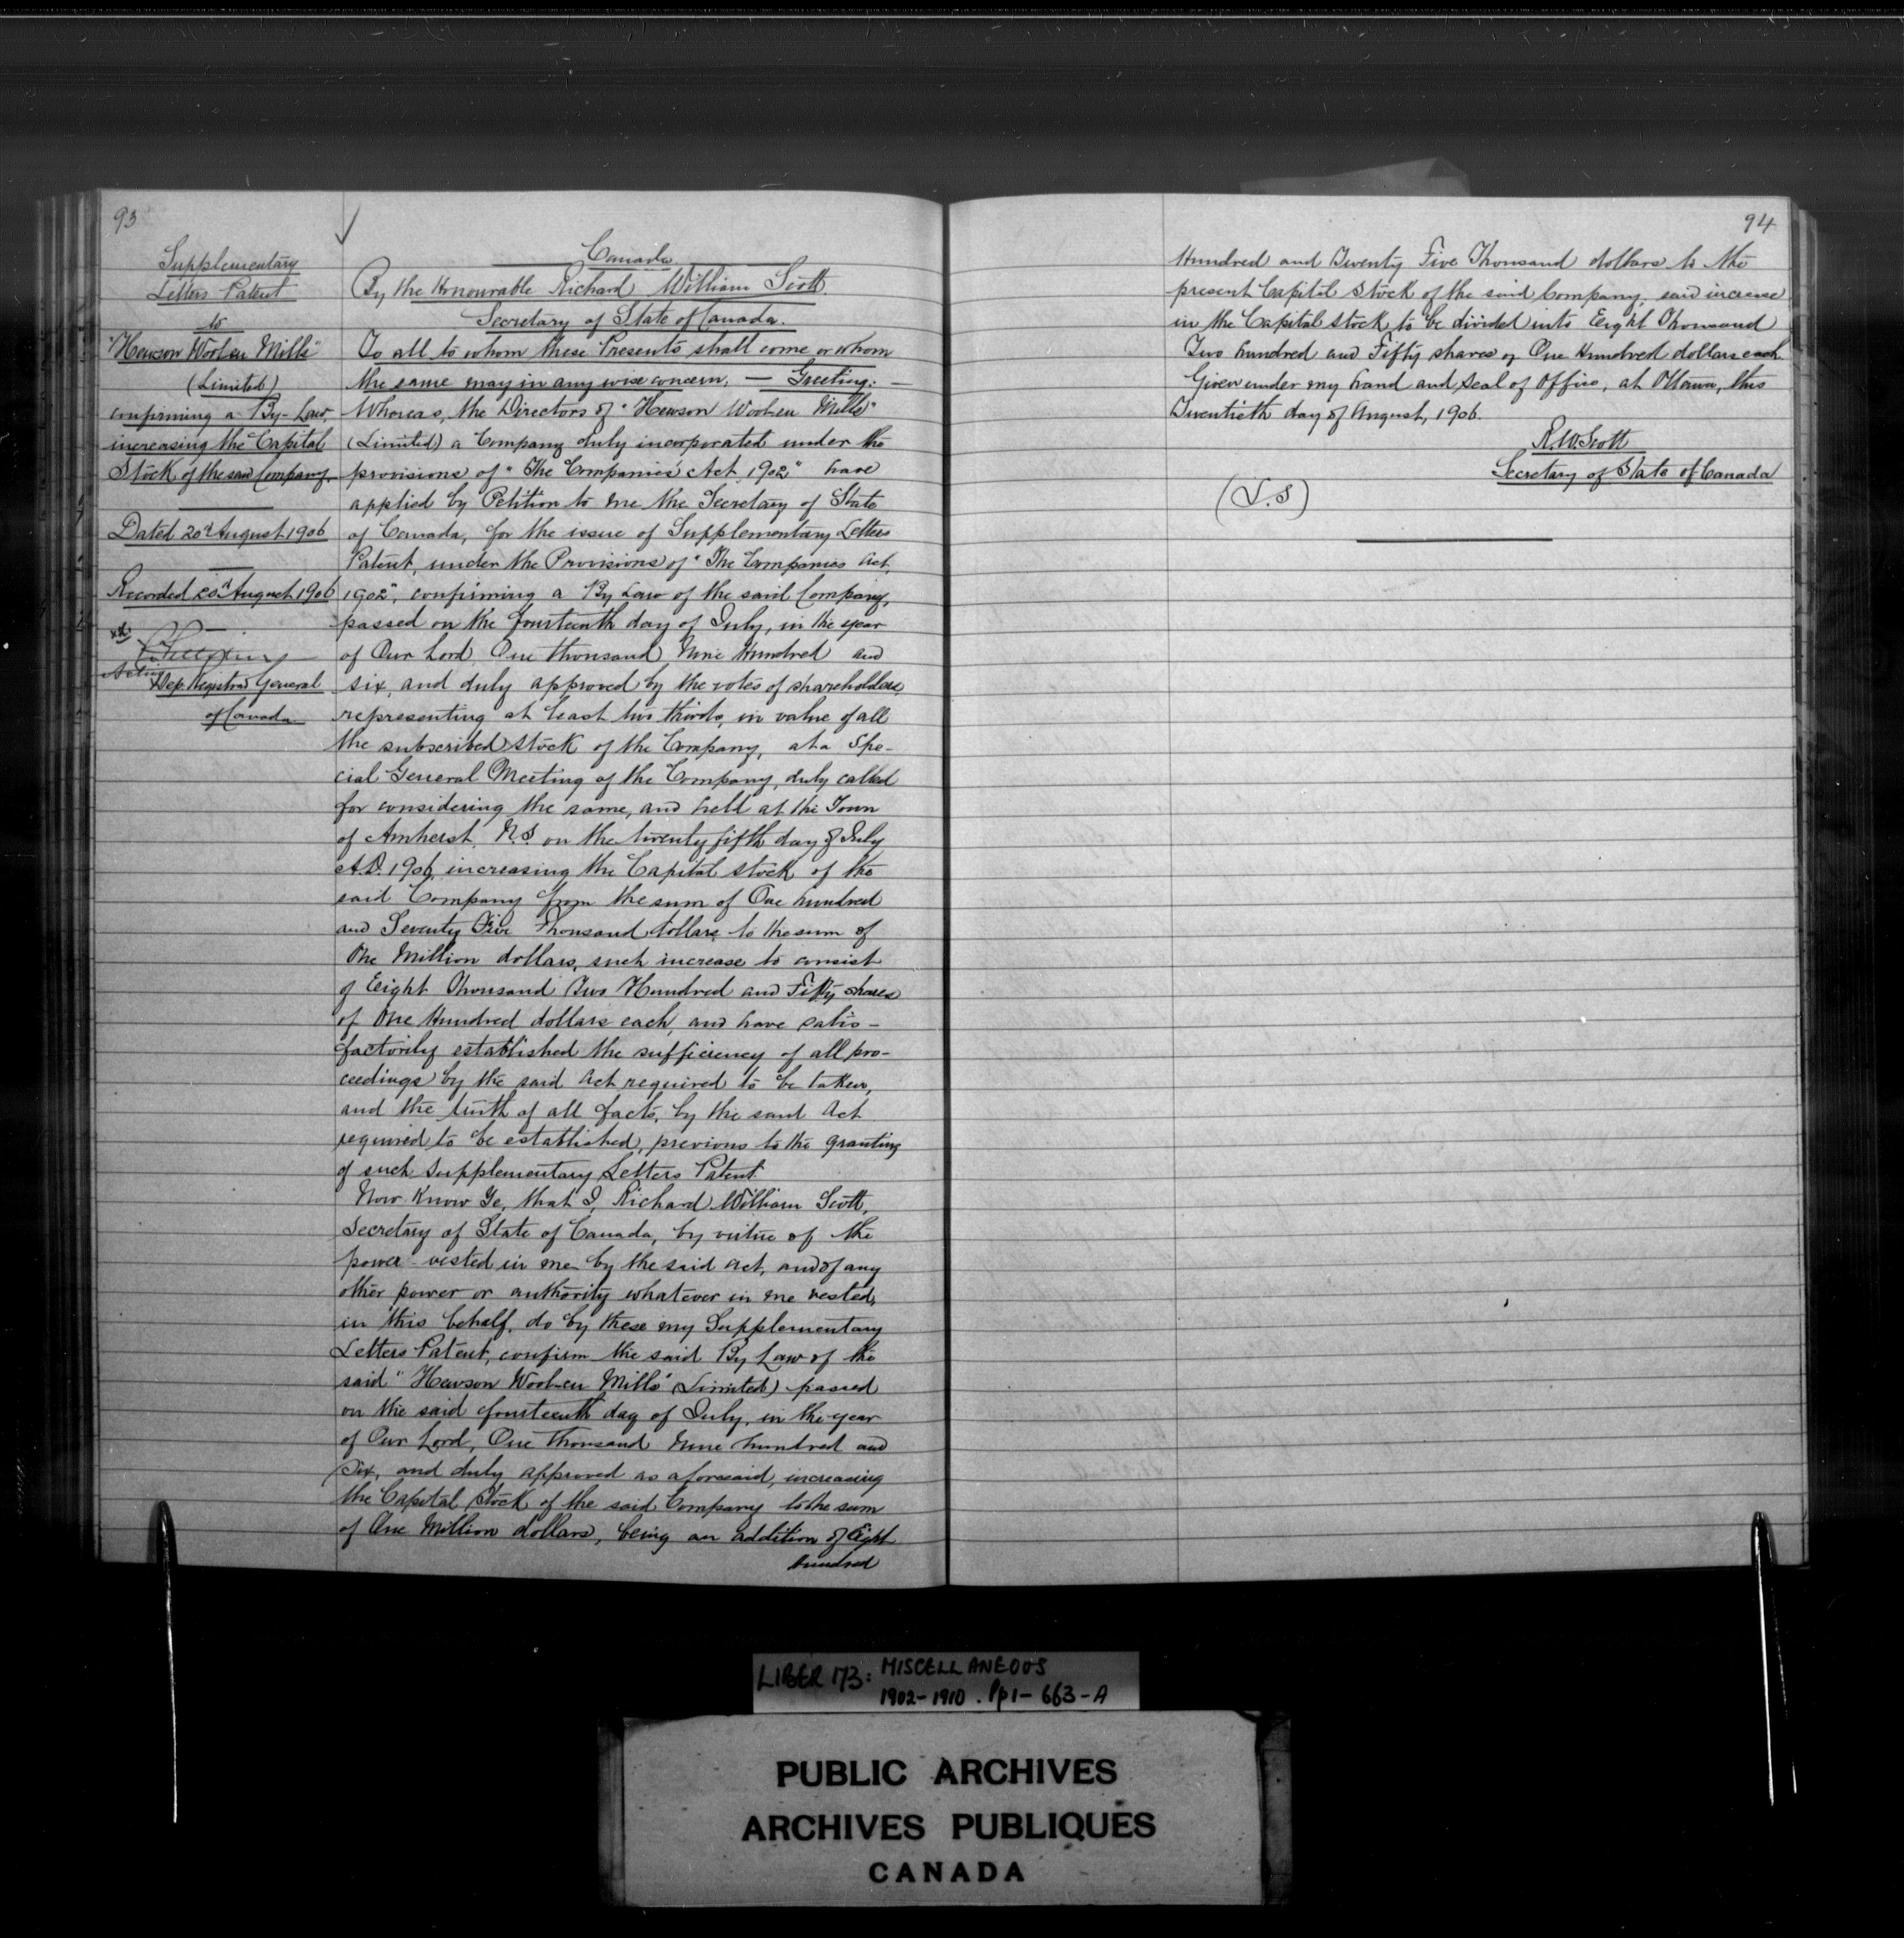 93
Supplementary
Letters Patent
to
"Hewson Woolen Mills"
(Limited)
confirming a By-Law
increasing the Capital
Stock of the said Company.
Dated 20th August 1906
Recorded 20th August 1906
Acting
Dep. Registrar General
of Canada
Canada
By the Honourable Richard William Scott
Secretary of State of Canada.
To all to whom these Presents shall come or whom
the same may in any wise concern, — Greeting: —
Whereas, the Directors of "Hewson Woolen Mills"
(Limited) a Company duly incorporated under the
provisions of "The Companies Act, 1902" have
applied by Petition to me the Secretary of State
of Canada, for the issue of Supplementary Letters
Patent, under the Provisions of "The Companies Act,
1902", confirming a By Law of the said Company,
passed on the fourteenth day of July, in the year
of Our Lord, One thousand Nine Hundred and
six, and duly approved by the votes of shareholders
representing at least two thirds, in value of all
the subscribed stock of the Company, at a Spe-
cial General Meeting of the Company, duly called
for considering the same, and held at the Town
of Amherst, N.S. on the twenty fifth day of July
A.D. 1906, increasing the Capital stock of the
said Company from the sum of One hundred
and Seventy Five Thousand dollars to the sum of
One Million dollars, such increase to consist
of Eight Thousand Two Hundred and Fifty shares
of One Hundred dollars each, and have satis-
factorily established the sufficiency of all pro-
ceedings by the said Act required to be taken,
and the truth of all facts, by the said Act
required to be established, previous to the granting
of such Supplementary Letters Patent
Now Know Ye, that I, Richard William Scott,
Secretary of State of Canada, by virtue of the
power vested in me by the said Act, and of any
other power or authority whatever in me vested,
in this behalf, do by these my Supplementary
Letters Patent, confirm the said By Law of the
said "Hewson Woolen Mills" (Limited) passed
on the said fourteenth day of July, in the year
of Our Lord, One thousand Nine hundred and
Six, and duly approved as aforesaid, increasing
the Capital Stock of the said Company to the sum
of One Million dollars, being an addition of Eight
hundred
94
Hundred and Twenty Five Thousand dollars to the
present Capital Stock of the said Company, said increase
in the Capital stock, to be divided into Eight Thousand
Two hundred and Fifty shares of One Hundred dollars each.
Given under my hand and Seal of Office, at Ottawa, this
Twentieth day of August, 1906.
R.W. Scott
Secretary of State of Canada
(L.S)
LIBER 173: MISCELLANEOUS
1902-1910. Pp1-663-A
PUBLIC ARCHIVES
ARCHIVES PUBLIQUES
CANADA